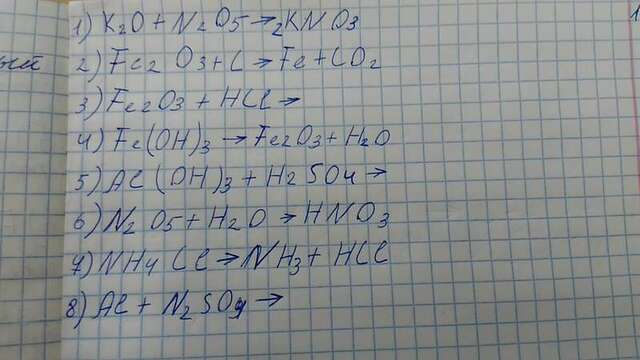 1) K₂O + N₂O₅ → 2KNO₃
2) Fe₂O₃ + C → Fe + CO₂
3) Fe₂O₃ + HCl →
4) Fe(OH)₃ → Fe₂O₃ + H₂O
5) Al(OH)₃ + H₂SO₄ →
6) N₂O₅ + H₂O → HNO₃
7) NH₄Cl → NH₃ + HCl
8) Al + N₂SO₄ →